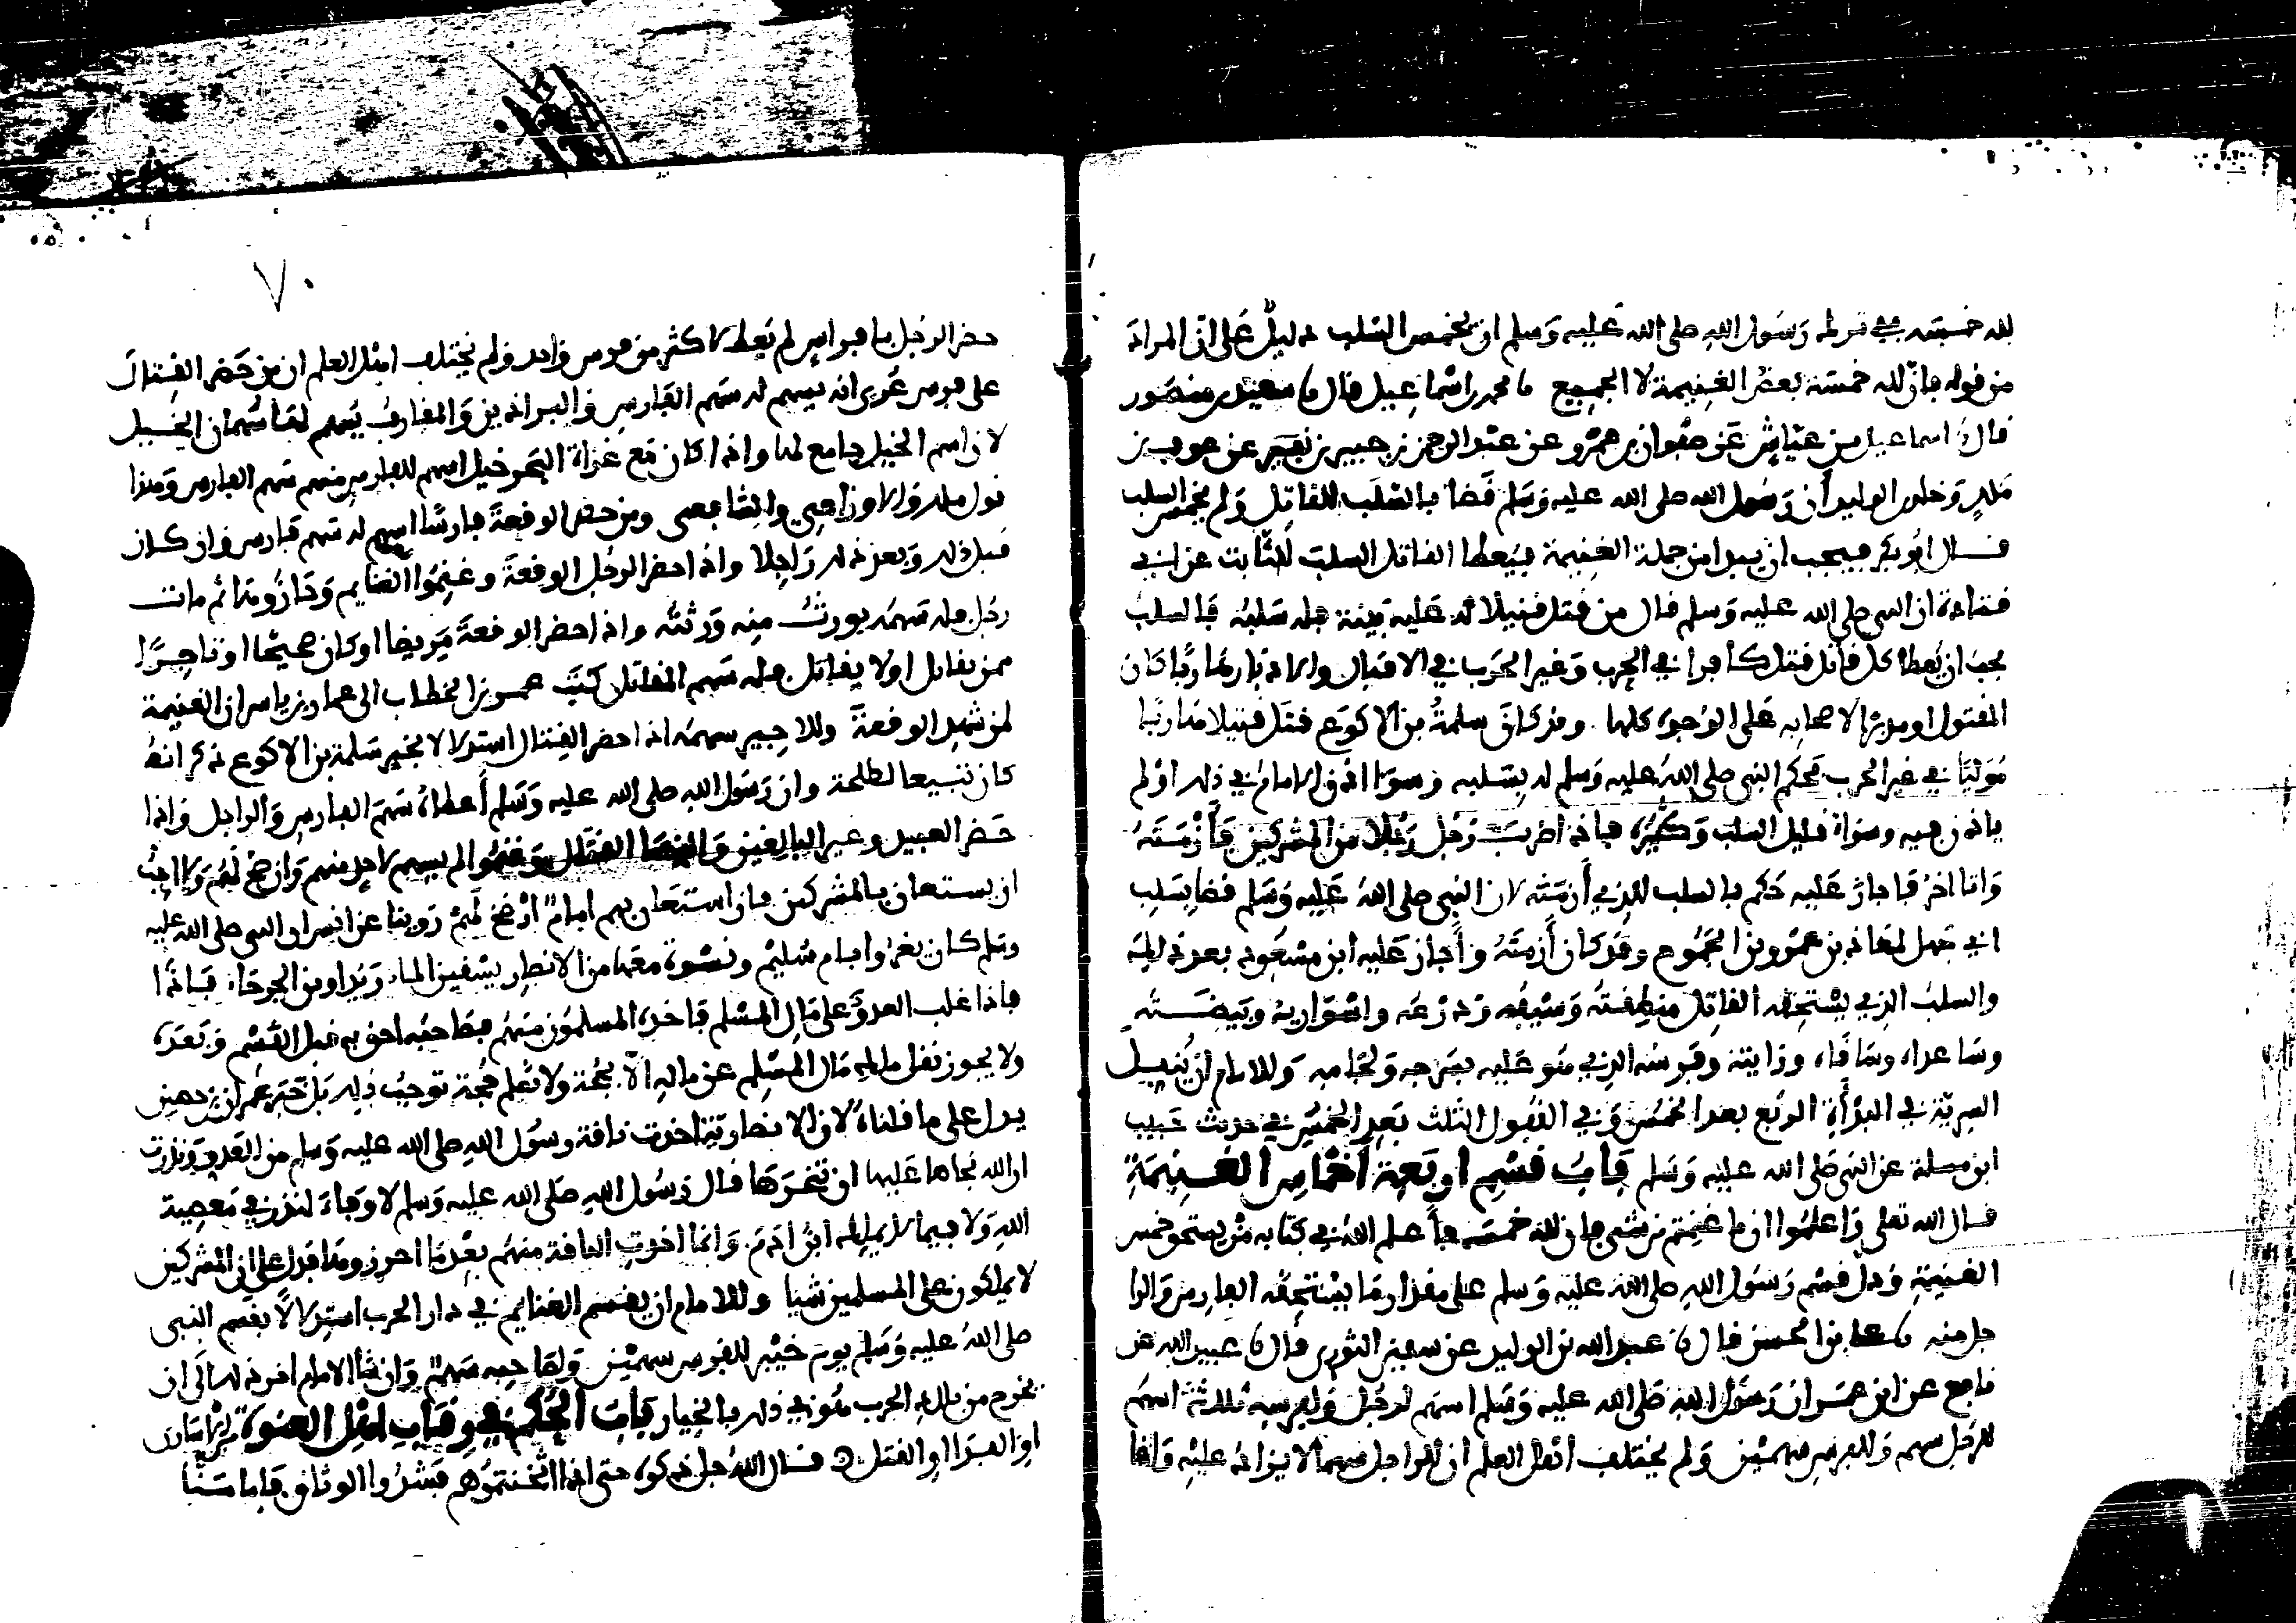 لله خمسه ففي ترك رسول الله صلى الله عليه وسلم ان يخمس السلب دليل على ان المراد
من قوله فان لله خمسه بعض الغنيمة لا الجميع نا محمد بن اسماعيل قال نا سعيد بن منصور
قال نا اسماعيل بن عياش عن صفوان بن عمرو عن عبد الرحمن بن جبير بن نفير عن عوف بن
ملك وخلد بن الوليد أن رسول الله صلى الله عليه وسلم قضا بالسلب للقاتل ولم يخمس السلب
قال ابو بكر فيجب ان يبدا من جملة الغنيمة فيعطا القاتل السلب للثابت عن ابي
قتادة ان النبي صلى الله عليه وسلم قال من قتل قتيلا له عليه بينة فله سلبه فالسلب
يجب ان يعطا كل قاتل قتل كافرا في الحرب وغير الحرب في الاقبال والادبار هاربا كان
المقتول او مبارزا لاصحابه على الوجوه كلها وقد كان سلمة بن الاكوع قتل قتيلا هاربا
موليا في غير الحرب فحكم النبي صلى الله عليه وسلم له بسلبه وسوا اذن الامام في ذلك او لم
ياذن فيه وسوا قليل السلب وكثيره فاذا ضرب رجل رجلا من المشركين فأزمنه
واتا اخر فاجاز عليه حكم بالسلب للذي أزمنه لان النبي صلى الله عليه وسلم قضا بسلب
ابي جهل لمعاذ بن عمرو بن الجموح وقد كان أزمنه وأجاز عليه ابن مسعود بعد ذلك
والسلب الذي يستحقه القاتل منطقته وسيفه ودرعه واسواريه وبيضته
وساعداه وساقاه ورايته وفرسه الذي هو عليه بسرجه ولجامه وللامام ان ينفل
السرية في البدأة الربع بعد الخمس وفي القفول الثلث بعد الخمس في حديث حبيب
ابن مسلمة عن النبي صلى الله عليه وسلم باب قسم اربعة أخماس الغنيمة
قال الله تعلى واعلموا ان ما غنمتم من شي فان لله خمسه فأعلم الله في كتابه من يستحق خمس
الغنيمة ودل قسم رسول الله صلى الله عليه وسلم على مقدار ما يستحقه الفارس والرا
جل منه نا علي بن الحسن قال نا عبد الله بن الوليد عن سفين الثوري قال نا عبيد الله عن
نافع عن ابن عمر ان رسول الله صلى الله عليه وسلم اسهم لرجل ولفرسه ثلاثة اسهم
للرجل سهم وللفرس سهمين ولم يختلف أهل العلم ان للراجل سهما لا يزاد عليه واذا
٧٠
حضر الرجل بافراس لم يعط لاكثر من فرس واحد ولم يختلف اهل العلم ان من حضر القتال
على فرس عربي انه يسهم له سهم الفارس والبراذين والمقارف يسهم لها سهمان الخيل
لان اسم الخيل جامع لها واذا كان مع غزاة البحر خيل اسهم للفارس منهم سهم الفارس وهذا
قول ملك والاوزاعي والشافعي ومن حضر الوقعة فارسا اسهم له سهم فارس وان كان
قبل ذلك وبعد ذلك راجلا واذا حضر الرجل الوقعة وغنموا الغنايم وحازوها ثم مات
رجل فله سهمه يورث منه ورثته واذا حضر الوقعة مريضا او كان صحيحا او تاجرا
ممن يقاتل او لا يقاتل فله سهم المقاتل كتب عمر بن الخطاب الى عمار بن ياسر ان الغنيمة
لمن شهد الوقعة وللاجير سهمه اذا حضر القتال استدلالا بخبر سلمة بن الاكوع ذكر انه
كان تبيعا لطلحة وان رسول الله صلى الله عليه وسلم أعطاه سهم الفارس والراجل واذا
حضر العبيد وغير البالغين والنسا القتال وغنموا لم يسهم لاحد منهم وارضخ لهم ولا احب
ان يستعان بالمشركين فان استعان بهم امام أرضخ لهم روينا عن انس ان النبي صلى الله عليه
وسلم كان يغزوا بام سليم ونسوة معها من الانصار يسقين الما ويداوين الجرحا فاذا
فاذا غلب العدو على مال المسلم فاخذه المسلمون منهم فصاحبه احق به قبل القسم وبعده
ولا يجوز نقل ملك مال المسلم عن مالكه الا بحجة ولا نعلم حجة توجب ذلك بل خبر عمران بن حصين
يدل على ما قلناه لان الانصارية اخذت ناقة رسول الله صلى الله عليه وسلم من العدو ونذرت
ان الله نجاها عليها ان تنحرها فقال رسول الله صلى الله عليه وسلم لا وفاء لنذر في معصية
الله ولا فيما لا يملكه ابن ادم وانما اخذت الناقة منهم بعدما احرزوها فدل على ان المشركين
لا يملكون على المسلمين شيا وللامام ان يقسم الغنايم في دار الحرب استدلالا بقسم النبي
صلى الله عليه وسلم يوم خيبر للفرس سهمين ولصاحبه سهم وان شا الامام اخر ذلك الى ان
يخرج من بلاد الحرب هو في ذلك بالخيار باب الحكم في رقاب اهل العنوة من الاسارى
او الفدا او القتل قال الله جل ذكره حتى اذا اثخنتموهم فشدوا الوثاق فاما منا